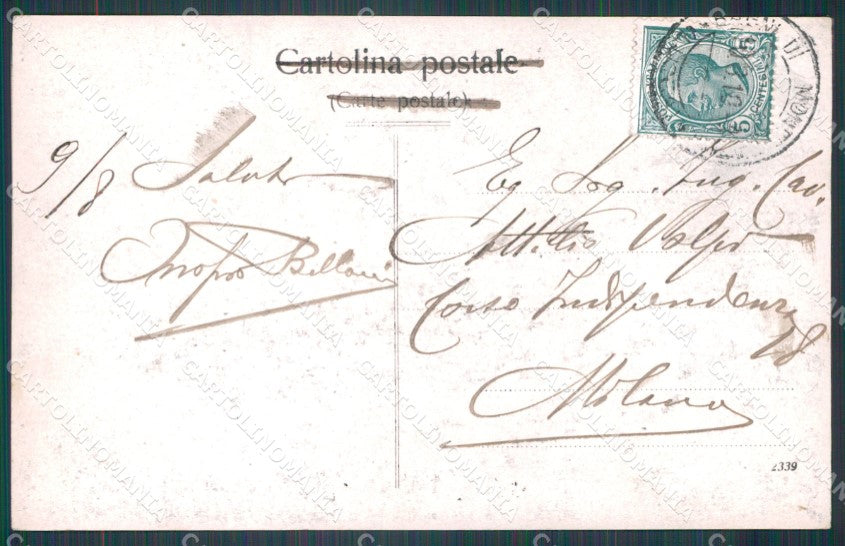 Cartolina postale
(Carte postale)
9/8 Saluti
Onofrio Belloni
Eg. Sig. Ing. Cav.
Attilio Volpi
Corso Indipendenza
18
Milano
2339
BAGNI DI MONT
CARTOLINOMANIA